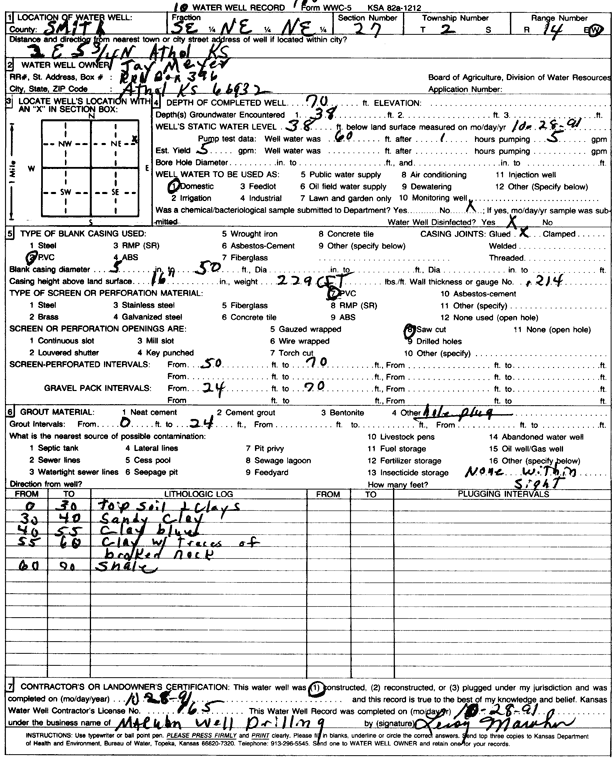 WATER WELL RECORD Form WWC-5 KSA 82a-1212
1 LOCATION OF WATER WELL: Fraction Section Number Township Number Range Number
County: SMITH SE ¼ NE ¼ NE ¼ 27 T 2 S R 14 E/W
Distance and direction from nearest town or city street address of well if located within city?
2 E 5 1/4 N Athol KS
2 WATER WELL OWNER: Jay Meyer
RR#, St. Address, Box # : Box 396 Board of Agriculture, Division of Water Resources
City, State, ZIP Code : Athol KS 66932 Application Number:
3 LOCATE WELL'S LOCATION WITH AN "X" IN SECTION BOX:
N
NW NE X
W E
SW SE
S
1 Mile
4 DEPTH OF COMPLETED WELL 70 ft. ELEVATION:
Depth(s) Groundwater Encountered 1. 38 ft. 2. ft. 3. ft.
WELL'S STATIC WATER LEVEL 38 ft. below land surface measured on mo/day/yr 10-28-91
Pump test data: Well water was 60 ft. after 1 hours pumping 5 gpm
Est. Yield 5 gpm: Well water was ft. after hours pumping gpm
Bore Hole Diameter in. to ft., and in. to ft.
WELL WATER TO BE USED AS: 5 Public water supply 8 Air conditioning 11 Injection well
1 Domestic 3 Feedlot 6 Oil field water supply 9 Dewatering 12 Other (Specify below)
2 Irrigation 4 Industrial 7 Lawn and garden only 10 Monitoring well
Was a chemical/bacteriological sample submitted to Department? Yes No X; If yes, mo/day/yr sample was submitted
Water Well Disinfected? Yes X No
5 TYPE OF BLANK CASING USED: 5 Wrought iron 8 Concrete tile CASING JOINTS: Glued X Clamped
1 Steel 3 RMP (SR) 6 Asbestos-Cement 9 Other (specify below) Welded
2 PVC 4 ABS 7 Fiberglass Threaded
Blank casing diameter 5 in. to 50 ft., Dia in. to ft., Dia in. to ft.
Casing height above land surface 16 in., weight 229 CFT lbs./ft. Wall thickness or gauge No. .214
TYPE OF SCREEN OR PERFORATION MATERIAL: 7 PVC 10 Asbestos-cement
1 Steel 3 Stainless steel 5 Fiberglass 8 RMP (SR) 11 Other (specify)
2 Brass 4 Galvanized steel 6 Concrete tile 9 ABS 12 None used (open hole)
SCREEN OR PERFORATION OPENINGS ARE: 5 Gauzed wrapped 8 Saw cut 11 None (open hole)
1 Continuous slot 3 Mill slot 6 Wire wrapped 9 Drilled holes
2 Louvered shutter 4 Key punched 7 Torch cut 10 Other (specify)
SCREEN-PERFORATED INTERVALS: From 50 ft. to 70 ft., From ft. to ft.
From ft. to ft., From ft. to ft.
GRAVEL PACK INTERVALS: From 24 ft. to 70 ft., From ft. to ft.
From ft. to ft., From ft. to ft.
6 GROUT MATERIAL: 1 Neat cement 2 Cement grout 3 Bentonite 4 Other hole plug
Grout Intervals: From 0 ft. to 24 ft., From ft. to ft., From ft. to ft.
What is the nearest source of possible contamination: 10 Livestock pens 14 Abandoned water well
1 Septic tank 4 Lateral lines 7 Pit privy 11 Fuel storage 15 Oil well/Gas well
2 Sewer lines 5 Cess pool 8 Sewage lagoon 12 Fertilizer storage 16 Other (specify below)
3 Watertight sewer lines 6 Seepage pit 9 Feedyard 13 Insecticide storage None within
Direction from well? How many feet? Sight
FROM TO LITHOLOGIC LOG FROM TO PLUGGING INTERVALS
0 30 top soil & clays
30 40 Sandy clay
40 55 Clay blue
55 60 Clay w/ Traces of
broken rock
60 70 Shale
7 CONTRACTOR'S OR LANDOWNER'S CERTIFICATION: This water well was (1) constructed, (2) reconstructed, or (3) plugged under my jurisdiction and was
completed on (mo/day/year) 10-28-91 and this record is true to the best of my knowledge and belief. Kansas
Water Well Contractor's License No. 165 This Water Well Record was completed on (mo/day/yr) 10-28-91
under the business name of Well Drilling by (signature)
INSTRUCTIONS: Use typewriter or ball point pen. PLEASE PRESS FIRMLY and PRINT clearly. Please fill in blanks, underline or circle the correct answers. Send top three copies to Kansas Department
of Health and Environment, Bureau of Water, Topeka, Kansas 66620-7320. Telephone: 913-296-5545. Send one to WATER WELL OWNER and retain one for your records.